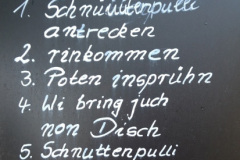 1. Schnuuttenpulli
antrecken
2. rinkommen
3. Poten insprühn
4. Wi bring juch
non Disch
5. Schnuttenpulli